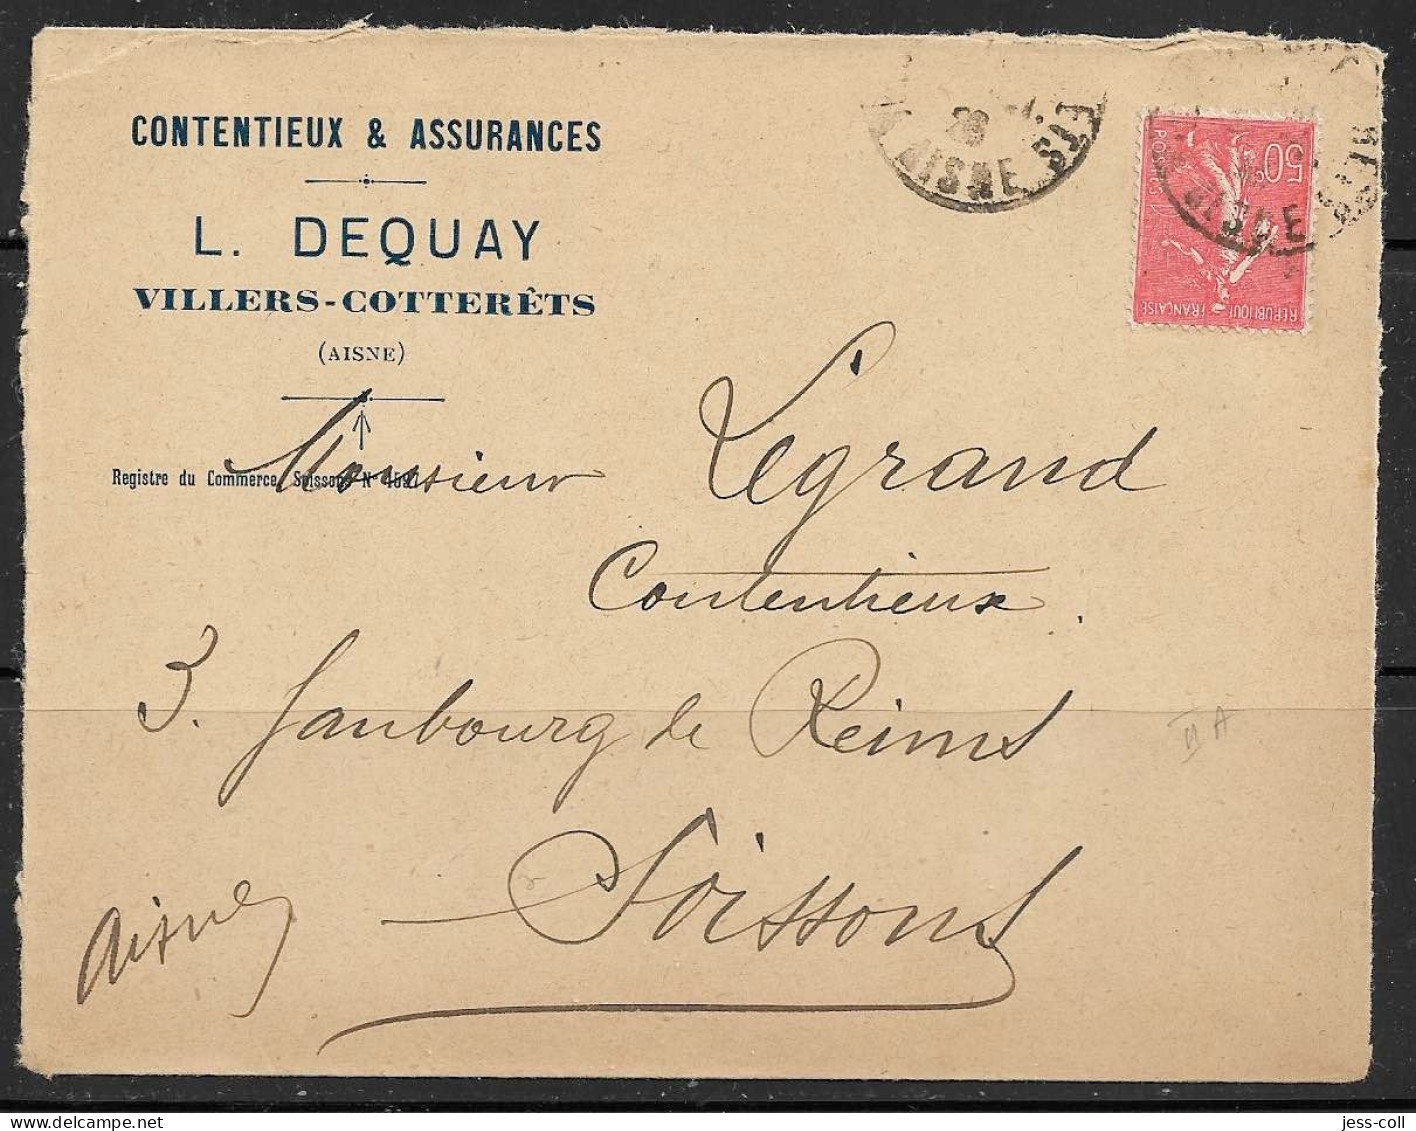 CONTENTIEUX & ASSURANCES
L. DEQUAY
VILLERS-COTTERÊTS
(AISNE)
Registre du Commerce, Soissons Nº
AISNE
50c
POSTES
REPUBLIQUE FRANÇAISE
Monsieur Legrand
Contentieux.
3. faubourg de Reims
II A
Soissons
Aisne
delcampe.net
jess-coll